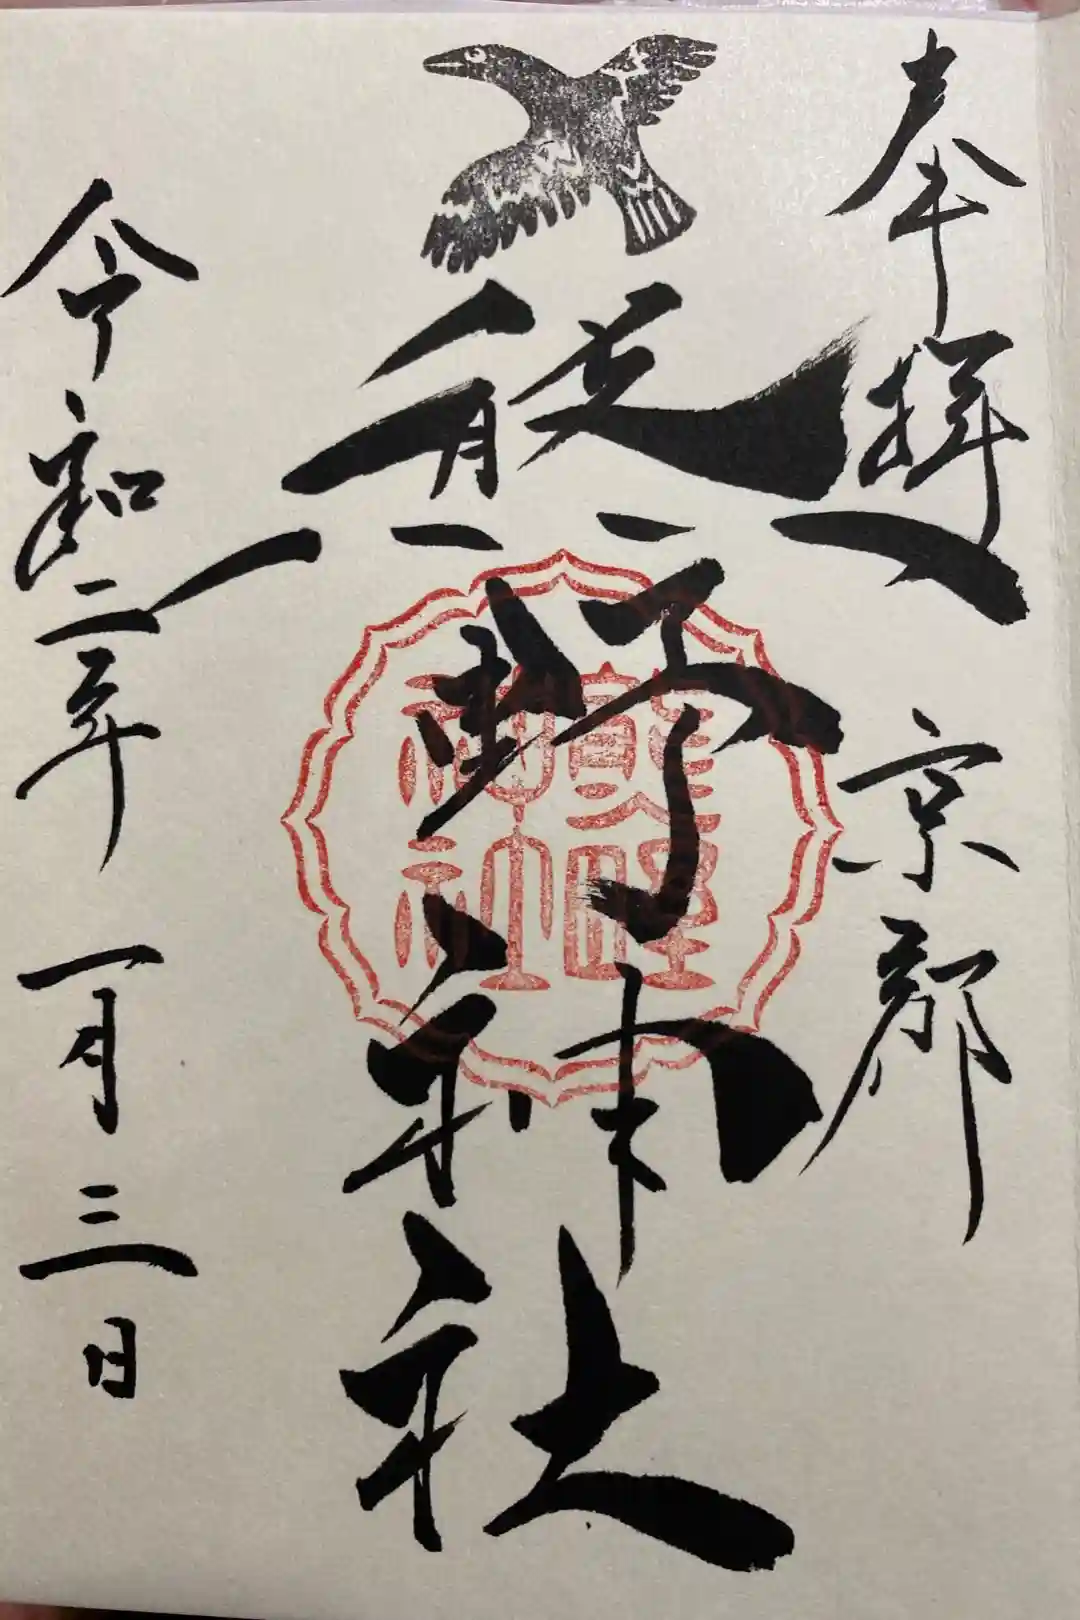 奉拝 京都
熊野神社
熊野神社
令和二年 一月三日